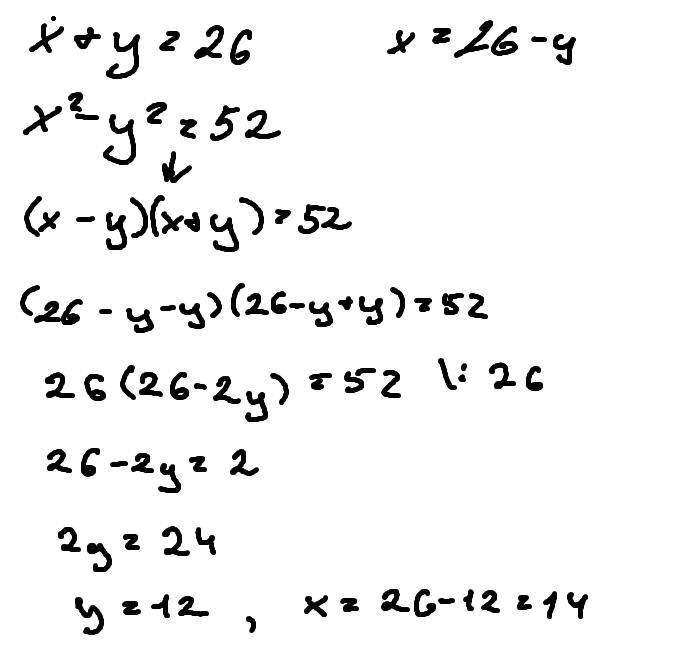 x + y = 26 x = 26 - y
x² - y² = 52
↓
(x - y)(x + y) = 52
(26 - y - y)(26 - y + y) = 52
26(26 - 2y) = 52 \: 26
26 - 2y = 2
2y = 24
y = 12 , x = 26 - 12 = 14